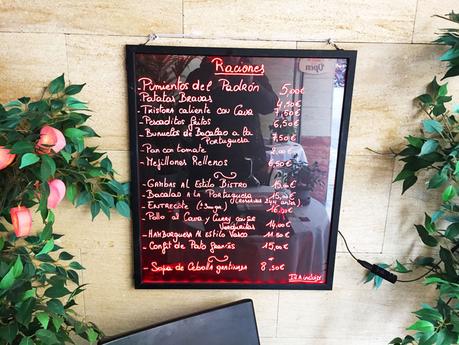 Raciones
Open
-Pimientos del Padrón 5,00€
Patatas Bravas 4,50€
-Txistorra caliente con Cava 7,50€
Pescaditos fritos 6,50€
-Buñuelos de Bacalao a la
Portuguesa 7,50€
-Pan con tomate
-Mejillones Rellenos 6,50€
-Gambas al Estilo Bistro
-Bacalao a la Portuguesa
Entrecote 16,00€
-Pollo al Cava y Curry con
14,00€
-Hamburguesa Al Estilo Vasco 11,50€
-Confit de Pato 15,00€
-Sopa de Cebolla gratinada 8,50€
IVA incluido